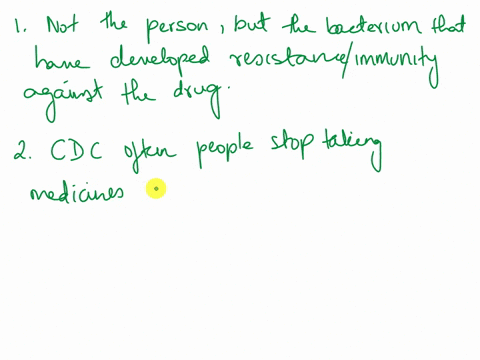 1. Not the person, but the bacterium that
have developed resistance/immunity
against the drug.
2. CDC often people stop taking
medicines